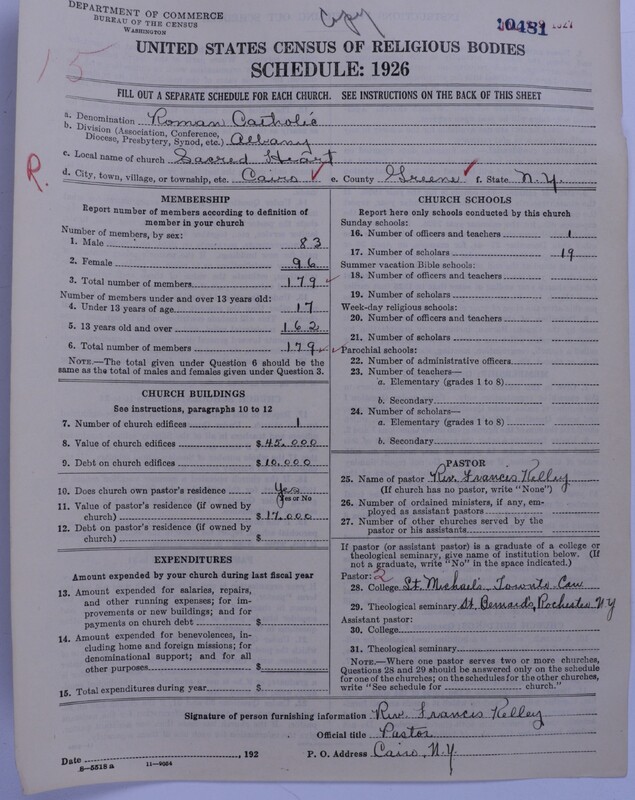 DEPARTMENT OF COMMERCE
BUREAU OF THE CENSUS
WASHINGTON
Copy
10481
15
UNITED STATES CENSUS OF RELIGIOUS BODIES
SCHEDULE: 1926
FILL OUT A SEPARATE SCHEDULE FOR EACH CHURCH. SEE INSTRUCTIONS ON THE BACK OF THIS SHEET
a. Denomination Roman Catholic
b. Division (Association, Conference, Diocese, Presbytery, Synod, etc.) Albany
c. Local name of church Sacred Heart
R.
d. City, town, village, or township, etc. Cairo e. County Greene f. State N.Y.
MEMBERSHIP
Report number of members according to definition of
member in your church
Number of members, by sex:
1. Male 83
2. Female 96
3. Total number of members 179
Number of members under and over 13 years old:
4. Under 13 years of age 17
5. 13 years old and over 162
6. Total number of members 179
NOTE.—The total given under Question 6 should be the
same as the total of males and females given under Question 3.
CHURCH BUILDINGS
See instructions, paragraphs 10 to 12
7. Number of church edifices 1
8. Value of church edifices $45,000
9. Debt on church edifices $10,000
10. Does church own pastor's residence Yes
Yes or No
11. Value of pastor's residence (if owned by
church) $17,000
12. Debt on pastor's residence (if owned by
church) $
EXPENDITURES
Amount expended by your church during last fiscal year
13. Amount expended for salaries, repairs,
and other running expenses; for im-
provements or new buildings; and for
payments on church debt $
14. Amount expended for benevolences, in-
cluding home and foreign missions; for
denominational support; and for all
other purposes $
15. Total expenditures during year $
CHURCH SCHOOLS
Report here only schools conducted by this church
Sunday schools:
16. Number of officers and teachers 1
17. Number of scholars 19
Summer vacation Bible schools:
18. Number of officers and teachers
19. Number of scholars
Week-day religious schools:
20. Number of officers and teachers
21. Number of scholars
Parochial schools:
22. Number of administrative officers
23. Number of teachers—
a. Elementary (grades 1 to 8)
b. Secondary
24. Number of scholars—
a. Elementary (grades 1 to 8)
b. Secondary
PASTOR
25. Name of pastor Rev. Francis Kelley
(If church has no pastor, write "None")
26. Number of ordained ministers, if any, em-
ployed as assistant pastors
27. Number of other churches served by the
pastor or his assistants
If pastor (or assistant pastor) is a graduate of a college or
theological seminary, give name of institution below. (If
not a graduate, write "No" in the space indicated.)
Pastor: 2
28. College St. Michael's, Toronto Can
29. Theological seminary St. Bernard's, Rochester N Y
Assistant pastor:
30. College
31. Theological seminary
NOTE.—Where one pastor serves two or more churches,
Questions 28 and 29 should be answered only on the schedule
for one of the churches; on the schedules for the other churches,
write "See schedule for church."
Signature of person furnishing information Rev. Francis Kelley
Official title Pastor
Date , 192 P. O. Address Cairo, N.Y
8—5518 a 11—9064